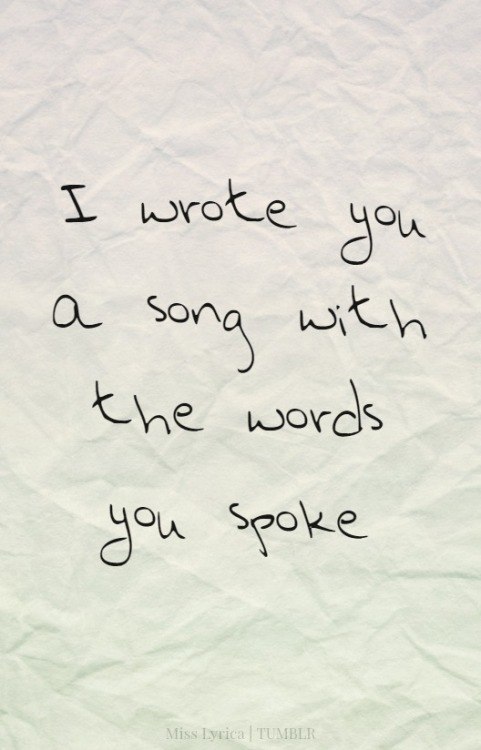 I wrote you
a song with
the words
you spoke
Miss Lyrica | TUMBLR